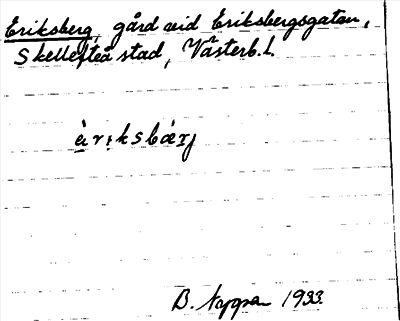 Eriksberg, gård vid Eriksbergsgatan,
Skellefteå stad, Västerb.l.
èrıksbærj
B. 1933.